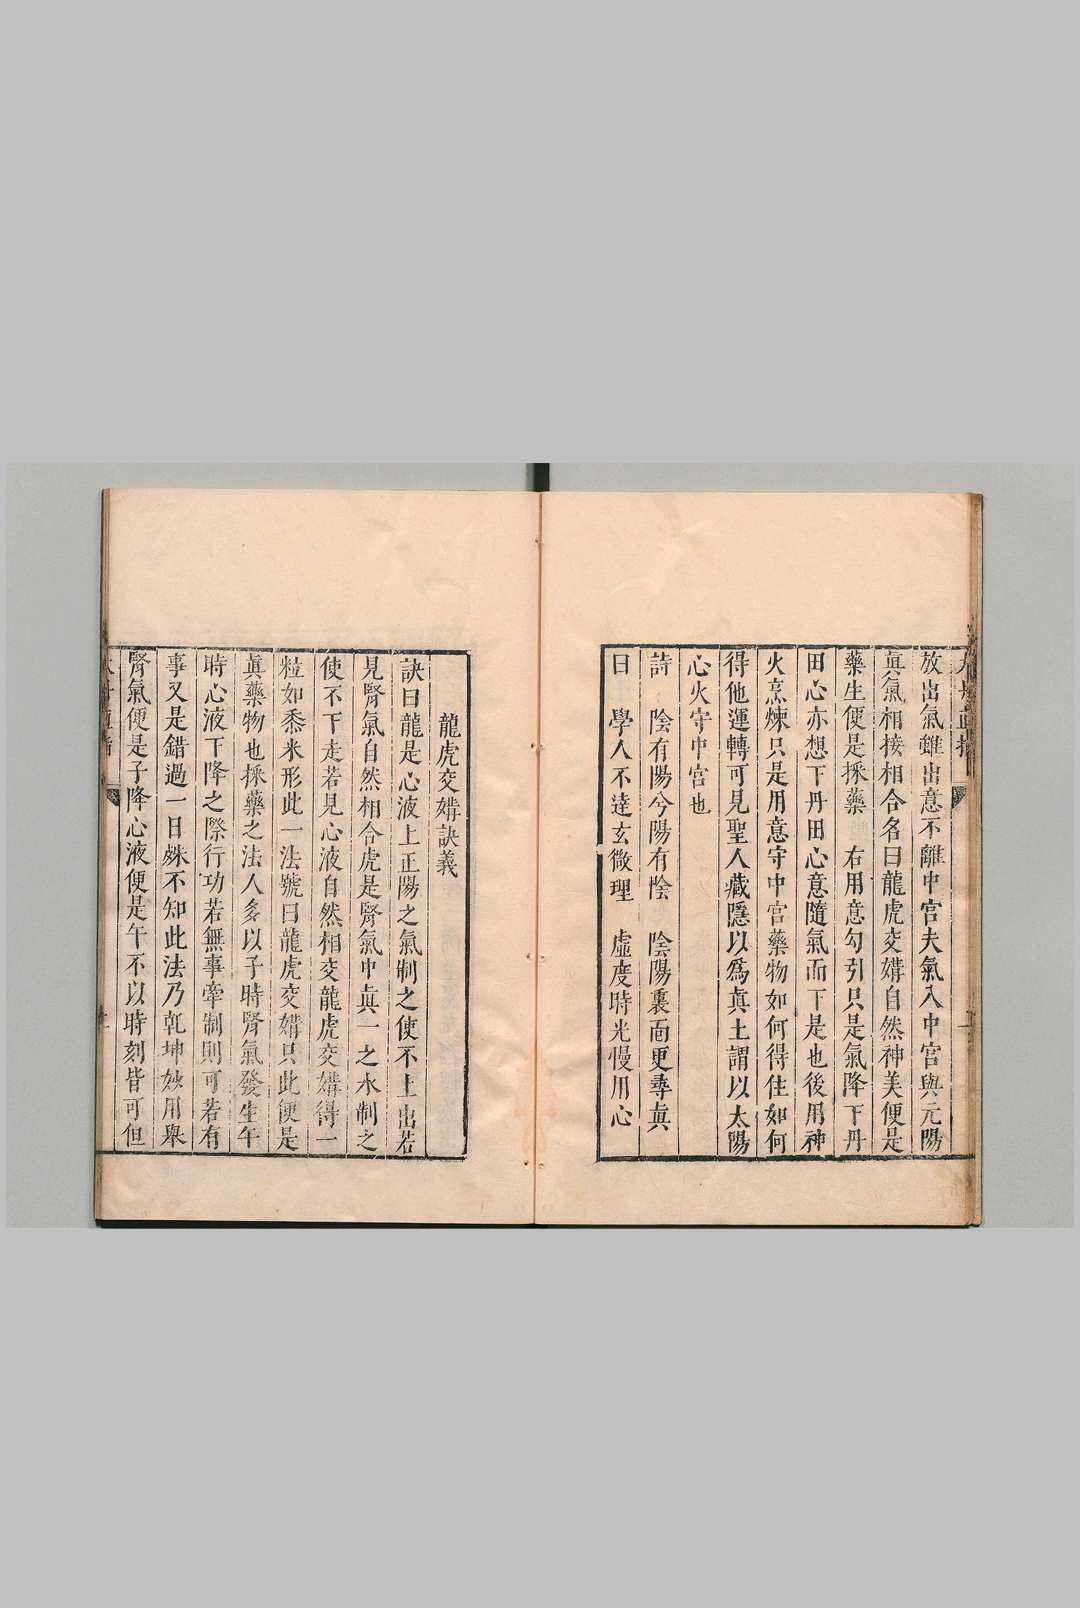 放出氣雖出意不離中宮夫氣入中宮與元陽
眞氣相接相合名曰龍虎交媾自然神美便是
藥生便是採藥　右用意勾引只是氣降下丹
田心亦想下丹田心意隨氣而下是也後用神
火烹煉只是用意守中宮藥物如何得住如何
得他運轉可見聖人藏隱以爲眞土謂以太陽
心火守中宮也
詩　陰有陽兮陽有陰　陰陽裏面更尋眞
曰　學人不達玄微理　虛度時光慢用心
龍虎交媾訣義
訣曰龍是心液上正陽之氣制之使不上出若
見腎氣自然相合虎是腎氣中眞一之水制之
使不下走若見心液自然相交龍虎交媾得一
粒如黍米形此一法號曰龍虎交媾只此便是
眞藥物也採藥之法人多以子時腎氣發生午
時心液下降之際行功若無事牽制則可若有
事又是錯過一日殊不知此法乃乾坤妙用舉
腎氣便是子降心液便是午不以時刻皆可但